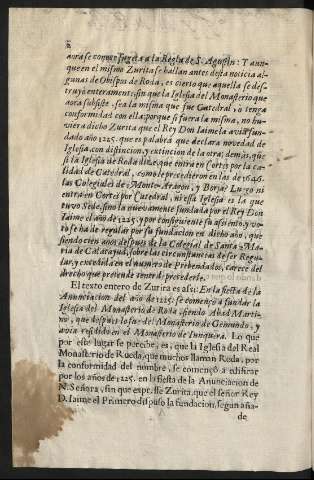 2
aora se conoce sugeta a la Regla de S. Agustin: Y aun-
que en el mismo Zurita se hallan antes desta noticia al-
gunas de Obispos de Roda, es cierto que aquella se des-
truyò enteramente, sin que la Iglesia del Monasterio que
aora subsiste sea la misma que fue Catedral, o tenga
conformidad con ella: porque si fuera la misma, no hu-
viera dicho Zurita que el Rey Don Iaime la avia fun-
dado año 1225. que es palabra que declara novedad de
Iglesia, con distincion, y extincion de la otra; demàs, que
si la Iglesia de Roda dize, que entra en Cortes por la ca-
lidad de Catedral, como le precedieron en las de 1646.
las Colegiales de Monte-Aragon, y Borja? Luego ni
entra en Cortes por Catedral, ni essa Iglesia es la que
tuvo Sede, sino la nuevamente fundada por el Rey Don
Iaime el año de 1225. y por consiguiente su assiento, y vo-
to se ha de regular por su fundacion en dicho año, que
siendo cien años despues de la Colegial de Santa Ma-
ria de Calatayud, sobre las circunstancias de ser Regu-
lar, y excedida en el numero de Prebendados, carece del
drecho que pretende tener de precederle.
El texto entero de Zurita es assi: En la fiesta de la
Anunciacion del año de 1225. se començò a fundar la
Iglesia del Monasterio de Roda, siendo Abad Marti-
no, que despues lo fue del Monasterio de Gemundo, y
avia residido en el Monasterio de Iunquera. Lo que
por este lugar se percibe, es, que la Iglesia del Real
Monasterio de Rueda, que muchos llaman Roda, por
la conformidad del nombre, se començò a edificar
por los años de 1225. en la fiesta de la Anunciacion de
N. Señora, sin que expresse Zurita, que el señor Rey
D. Iaime el Primero dispuso la fundacion, segun aña-
de